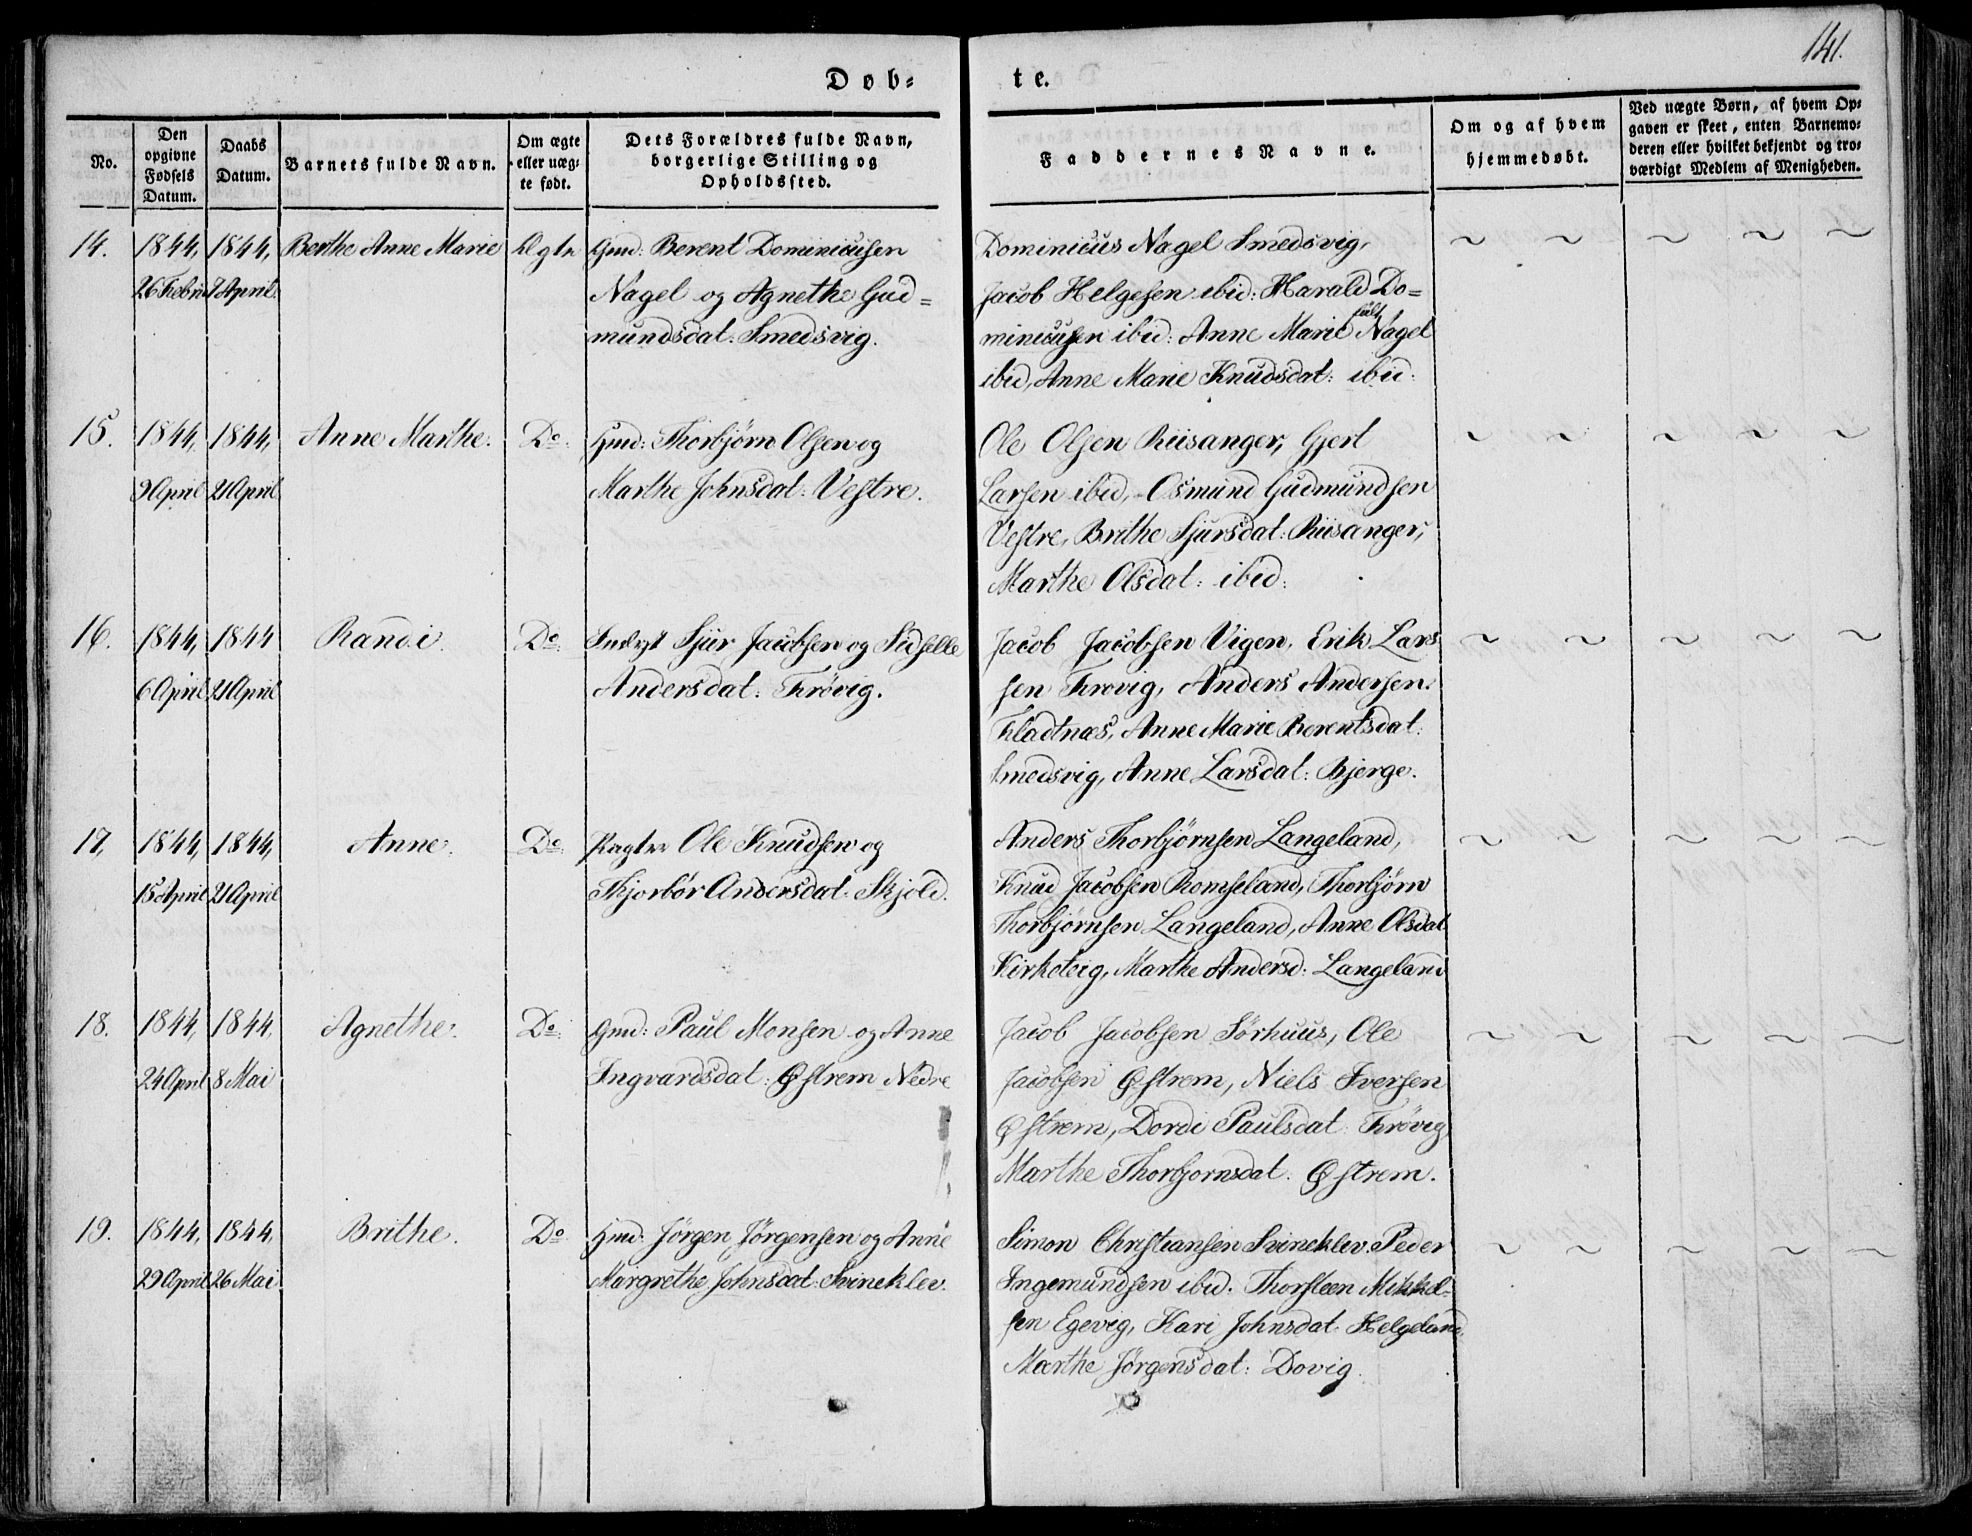 141.
Døb=
te.
No.
Den opgivne Fødsels Datum.
Daabs Datum.
Barnets fulde Navn.
Om ægte eller uæg= te født.
Dets Forældres fulde Navn, borgerlige Stilling og Opholdssted.
Faddernes Navne.
Om og af hvem hjemmedøbt.
Ved uægte Børn, af hvem Op= gaven er skeet, enten Barnemo= deren eller hvilket bekjendt og tro= værdigt Medlem af Menigheden.
14.
1844, 26 Febru
1844, 7 April
Berthe Anne Marie
Ægte
Gmd: Berent Dominicusen
Nagel og Agnethe Gud=
mundsdat: Smedsvig.
Dominicus Nagel Smedsvig,
Jacob Helgesen ibid: Harald Do=
minicusen ibid: Anne Marie Nagel
ibid, Anne Marie Knudsdat: ibid:
15.
1844, 9 April
1844, 21 April
Anne Marthe.
Do.
Hmd: Thorbjørn Olsen og
Marthe Johnsdat: Vestre.
Ole Olsen Riisanger, Gjert
Larsen ibid, Osmund Gudmundsen
Vestre, Brithe Sjursdat: Riisanger,
Marthe Olsdat: ibid:
16.
1844, 6 April
1844 21 April
Randi.
Do.
Sjur Jacobsen og Sidselle
Andersdat: Trøvig.
Jacob Jacobsen Vigen, Erik Lar=
sen Trøvig, Anders Andersen
Fladtnæs, Anne Marie Berentsdat:
Smedsvig, Anne Larsdat: Bjerge.
17,
1844, 15 April
1844, 21 April
Anne.
Do.
Ole Knudsen og
Thjorbør Andersdat: Skjold.
Anders Thorbjørnsen Langeland,
Knud Jacobsen Romseland, Thorbjørn
Thorbjørnsen Langeland, Anne Olsdat
Kirketeig, Marthe Andersd: Langeland
18.
1844, 24 April
1844, 8 Mai
Agnethe.
Do.
Gmd: Paul Monsen og Anne
Ingvardsdat: Østrem Nedre
Jacob Jacobsen Sørhuus, Ole
Jacobsen Østrem, Niels Iversen
Østrem, Dordi Paulsdat: Trøvig
Marthe Thorbjornsdat: Østrem.
19.
1844, 29 April
1844, 26 Mai
Brithe.
Do
Hmd: Jørgen Jørgensen og Anne
Margrethe Johnsdat: Svineklev.
Simon Christiansen Svineklev. Peder
Ingemundsen ibid. Thorsteen Mikkel=
sen Egevig, Kari Johnsdat: Helgeland,
Marthe Jørgensdat: Dovig.